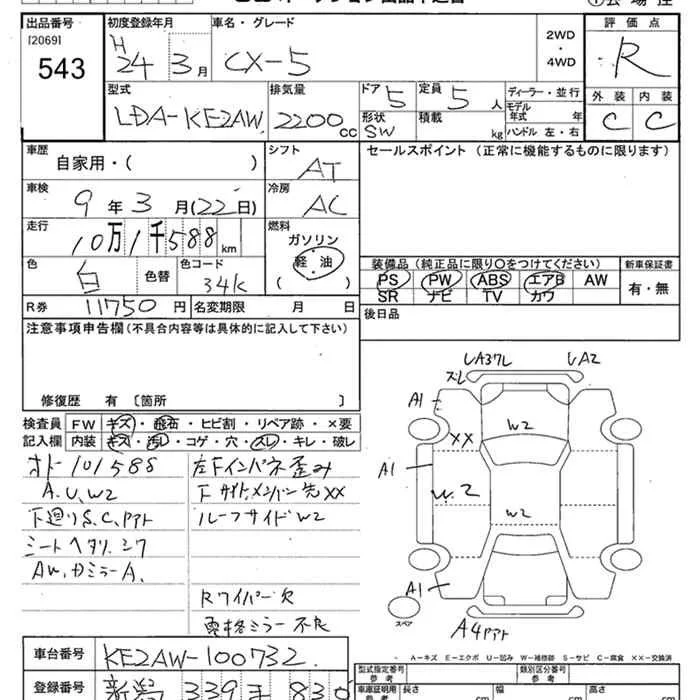 出品番号 初度登録年月 車名・グレード 評価点
[2069] H 2WD
543 24 3月 CX-5 ・ R
4WD
型式 排気量 ドア 定員 ディーラー・並行 外装 内装
LDA-KE2AW 2200cc 5 5人 モデル年式 年 C C
形状 SW 積載 kg ハンドル 左・右
車歴 シフト セールスポイント (正常に機能するものに限ります)
自家用・( ) AT
車検 冷房
9年3月(22日) AC
走行 燃料
10万1千588km ガソリン
軽油
色 色替 色コード ( )
白 34K
装備品 (純正品に限り〇をつけてください) 新車保証書
PS PW ABS エアB AW 有・無
SR ナビ TV カワ
R券 11750円 名変期限 月 日
後日品
注意事項申告欄(不具合内容等は具体的に記入して下さい)
修復歴 有 〔箇所 〕
検査員 FW キズ・飛石・ヒビ割・リペア跡・×要
記入欄 内装 キズ・汚レ・コゲ・穴・スレ・キレ・破レ
オドー101588 左Fインパネ歪み
A.U.W2 F サイドメンバー先XX
下廻りS.C.アト ルーフサイドW2
シートヘタリ.シワ
AW.ドミラーA.
Rワイパー欠
電格ミラー不良
UA37L UA2
スレ
A1
W2
XX
A1
W.2
W2
A1
スペア
A4アト
A・・キズ E・・エクボ U・・凹み W・・補修跡 S・・サビ C・・腐食 XX・・交換済
車台番号 KE2AW-100732
型式指定番号 参考 類別区分番号 参考
登録番号 新潟 339 830
車庫証明用 参考 長さ cm 幅 cm 高さ cm